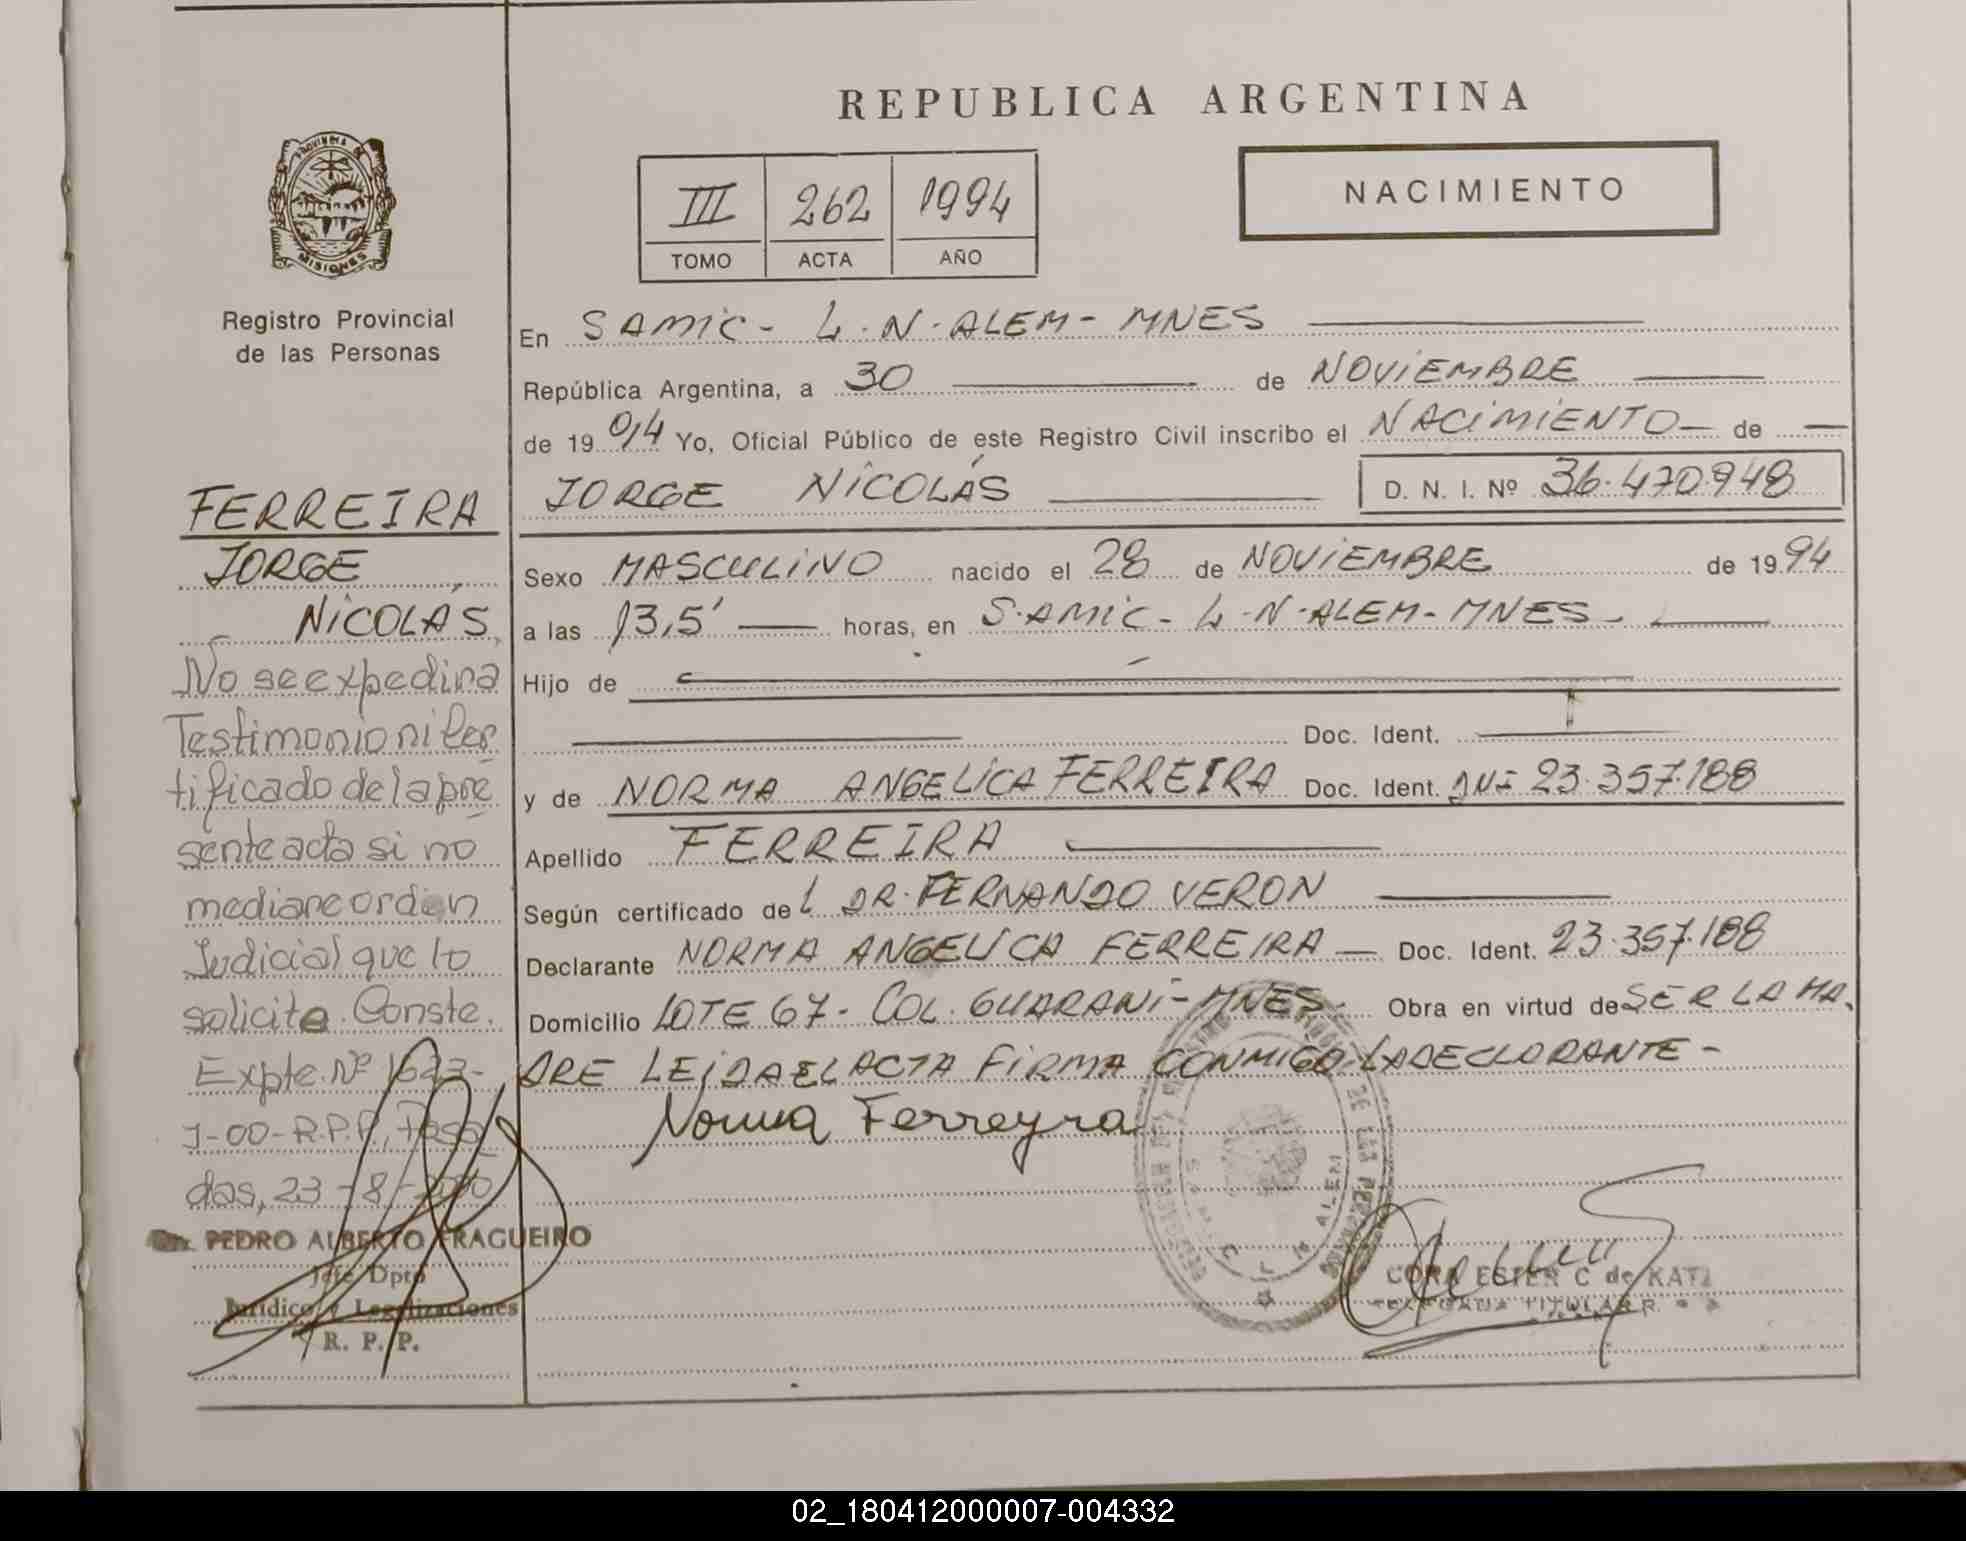 REPUBLICA ARGENTINA
PROVINCIA DE
MISIONES
Registro Provincial
de las Personas
III 262 1994
TOMO ACTA AÑO
NACIMIENTO
En SAMIC - L.N.ALEM - MNES
República Argentina, a 30 de NOVIEMBRE
de 19 94 Yo, Oficial Público de este Registro Civil inscribo el NACIMIENTO de
JORGE NICOLÁS D. N. I. Nº 36.470.948
Sexo MASCULINO nacido el 28 de NOVIEMBRE de 19 94
a las 13,5' horas, en SAMIC - L.N.ALEM - MNES
Hijo de
Doc. Ident.
y de NORMA ANGELICA FERREIRA Doc. Ident. DNI 23.357.188
Apellido FERREIRA
Según certificado del DR. FERNANDO VERON
Declarante NORMA ANGELICA FERREIRA Doc. Ident. 23.357.188
Domicilio LOTE 67 - COL. GUARANI - MNES. Obra en virtud de SER LA MA
DRE LEIDA EL ACTA FIRMA CONMIGO LA DECLARANTE -
Norma Ferreyra
CORA ESTER C de KATZ
DELEGADA TITULAR R
FERREIRA
JORGE
NICOLÁS
No se expedira
Testimonio ni Cer
tificado de la pre
sente acta si no
mediare orden
Judicial que lo
solicite. Conste.
Expte. Nº 1623-
J-00-R.P.P, Posa
das, 23-8-2000
Dr. PEDRO ALBERTO FRAGUEIRO
Jefe Dpto
Jurídico y Legalizaciones
R. P. P.
02_180412000007-004332